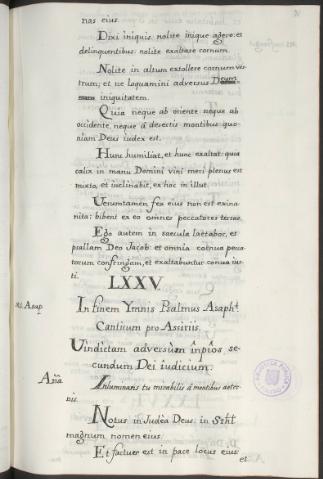 nas eius.
Dixi iniquis nolite inique agere: et
delinquentibus: nolite exaltare cornum.
Nolite in altum extollere cornum ves
trum; et ne loquamini adversus Deum
iniquitatem.
Quia neque ab oriente neque ab
occidente, neque à desertis montibus quo
niam Deus iudex est.
Hunc humiliat, et hunc exaltat: quia
calix in manu Domini vini meri plenus est
mixto, et inclinabit, ex hoc in illut.
Verumtamen fex eius non est exina
nita: bibent ex eo omnes peccatores terrae.
Ego autem in saecula laetabor, et
psallam Deo Jacob: et omnia cornua pecca
torum confringam, et exaltabuntur cornua ius
ti.
LXXV
In finem Ymnis Psalmus Asapht
Asap.
Canticum pro Assiriis.
Uindictam adversùm inpios se-
cundum Dei iudicium.
Inluminans tu mirabilis à montibus aeter
nis.
Notus in Judèa Deus: in Srhl
magnum nomen eius.
Et factus est in pace locus eius
et